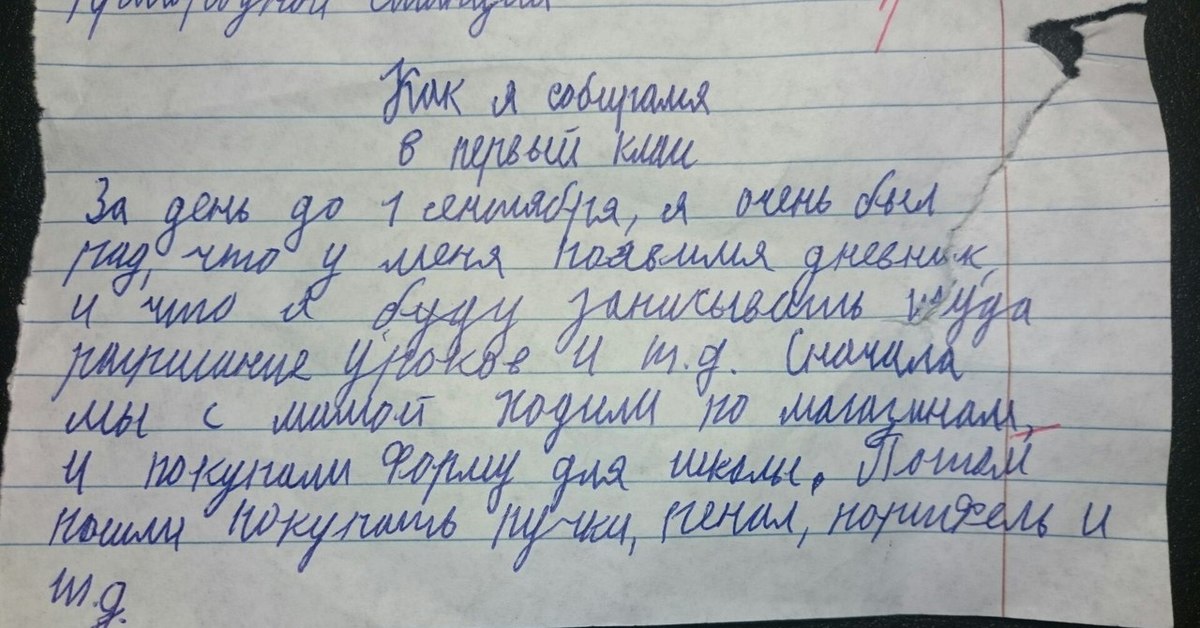 Как я собирался
в первый класс
За день до 1 сентября, я очень был
рад, что у меня появился дневник,
и что я буду записывать туда
расписание уроков и т.д. Сначала
мы с мамой ходили по магазинам,
и покупали форму для школы. Потом
пошли покупать ручки, пенал, портфель и
т.д.